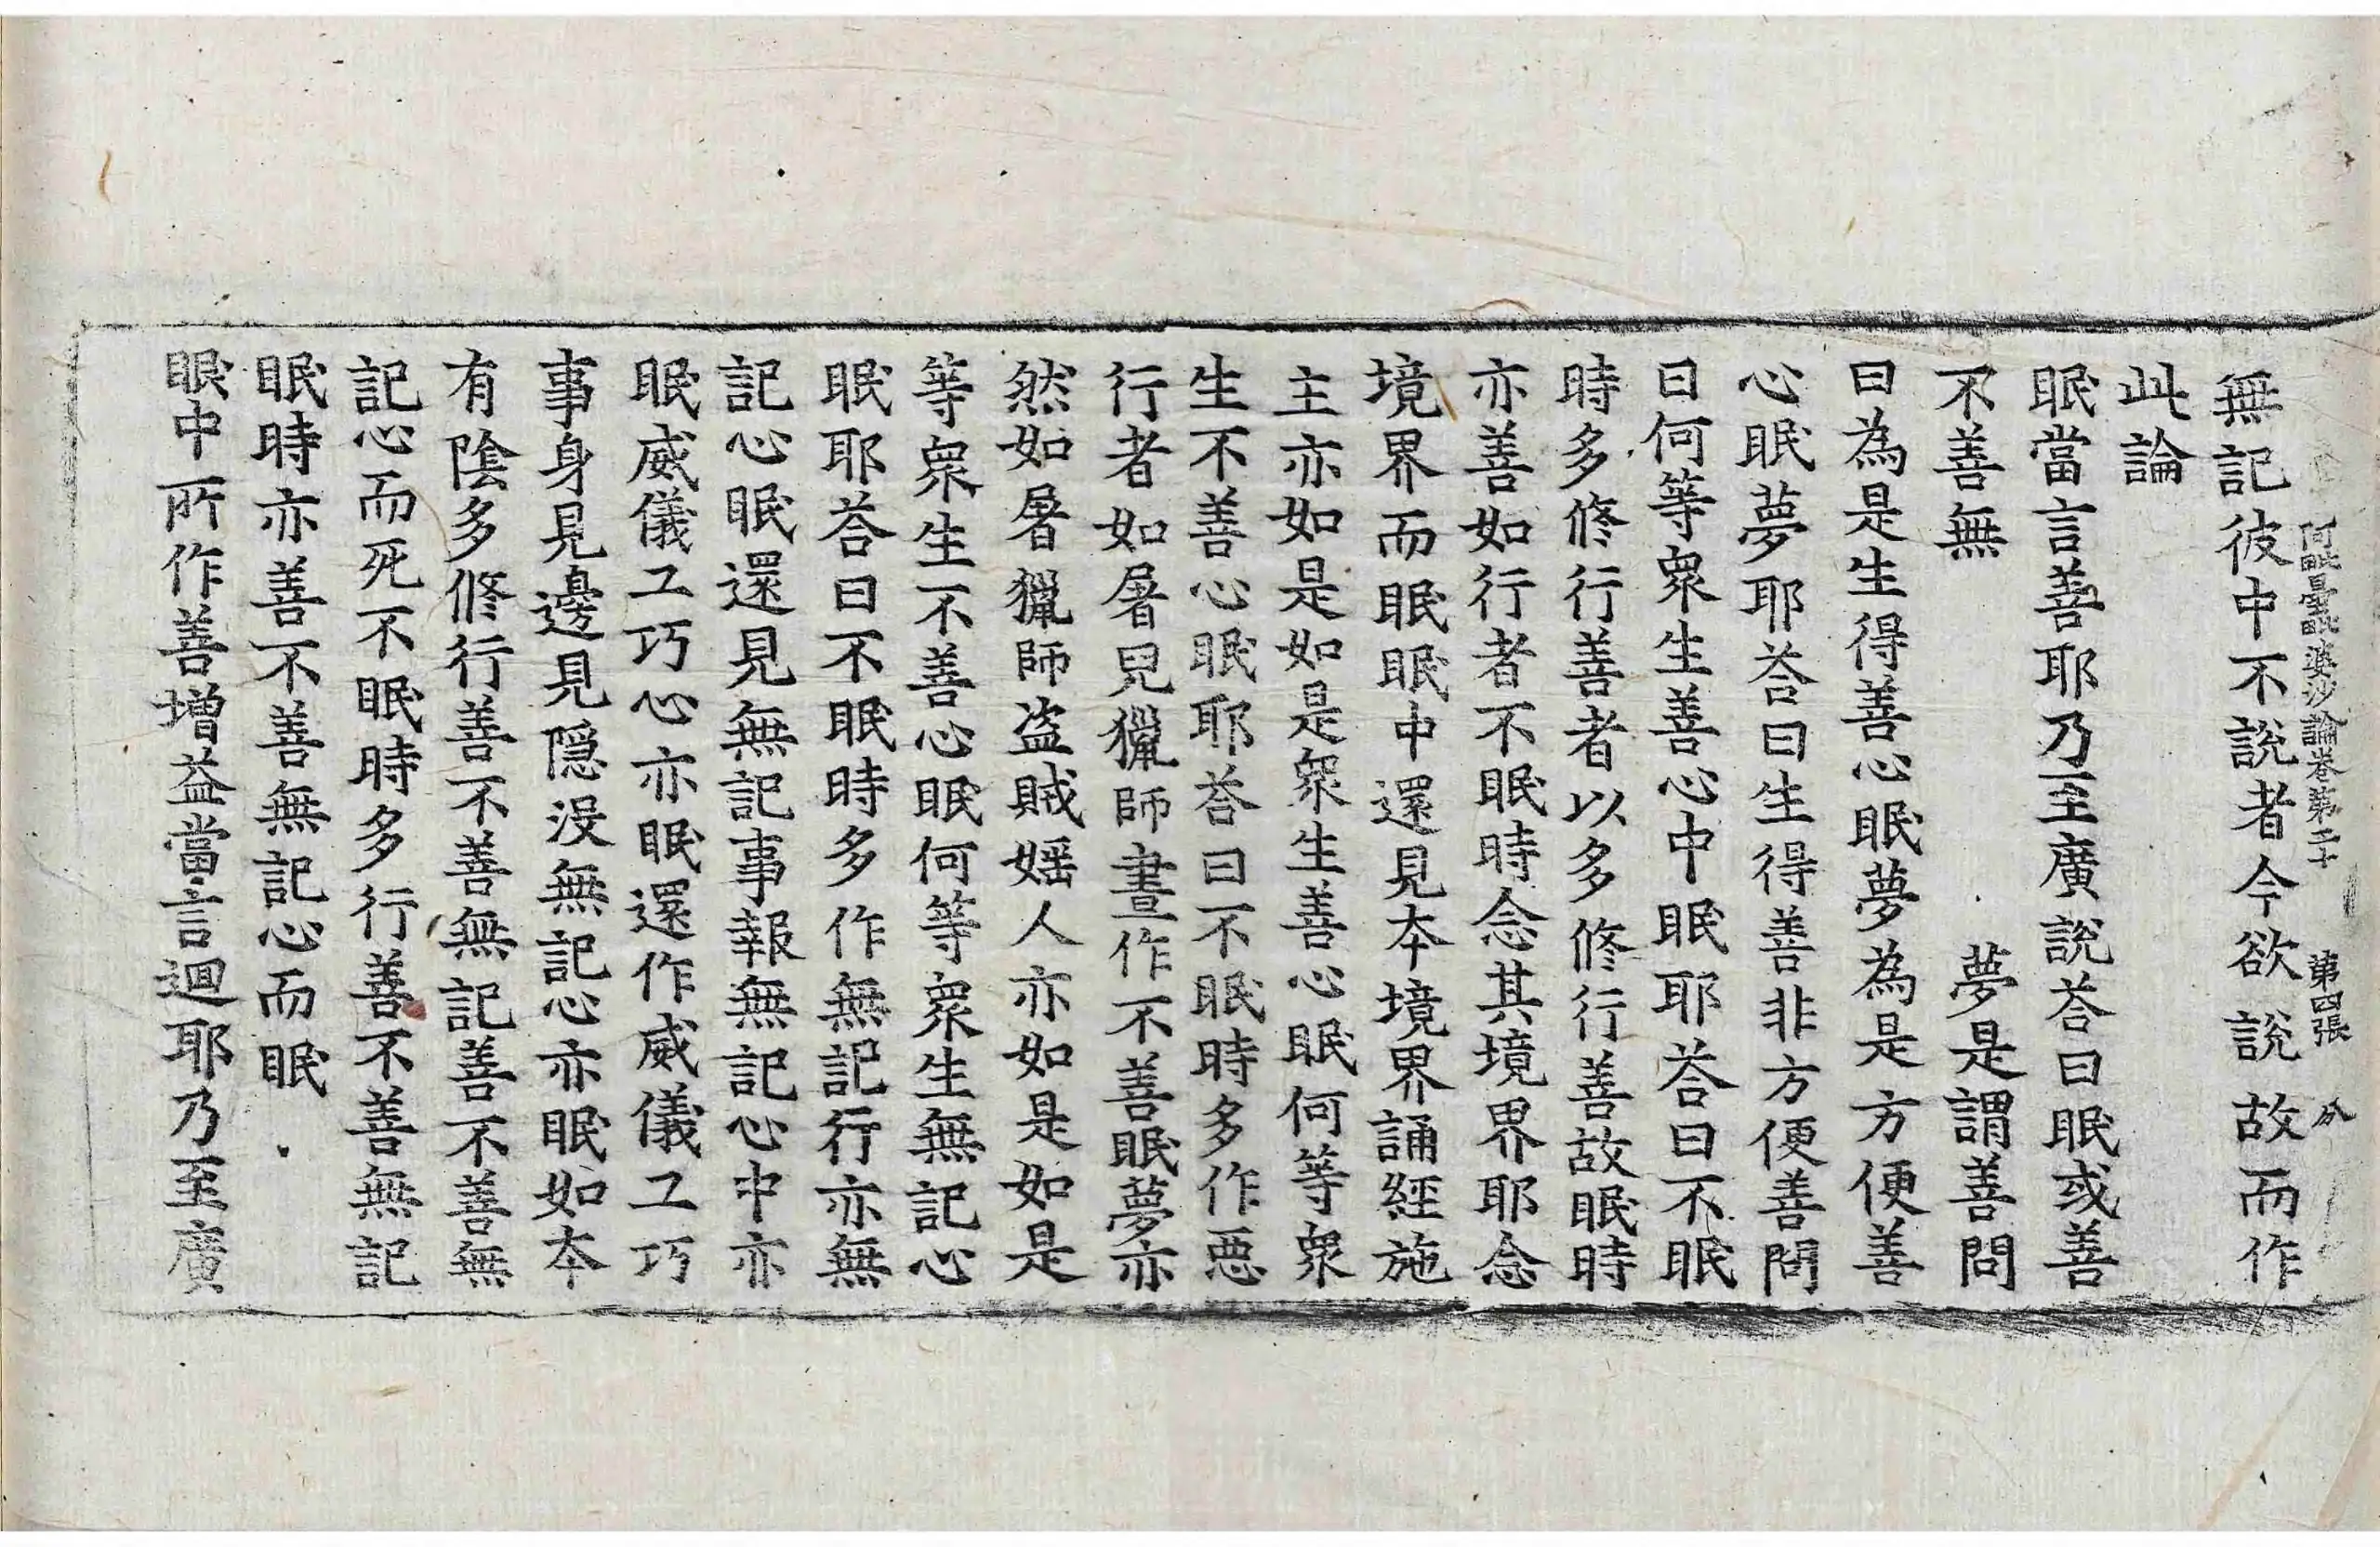 阿毗曇毗婆沙論卷第二十 第四張 分
無記彼中不說者今欲說故而作
此論
眠當言善耶乃至廣說荅曰眠或善
不善無 夢是謂善問
曰為是生得善心眠夢為是方便善
心眠夢耶荅曰生得善非方便善問
曰何等眾生善心中眠耶荅曰不眠
時多修行善者以多修行善故眠時
亦善如行者不眠時念其境界耶念
境界而眠眠中還見本境界誦經施
主亦如是如是眾生善心眠何等眾
生不善心眠耶荅曰不眠時多作惡
行者如屠兒獵師晝作不善眠夢亦
然如屠獵師盜賊婬人亦如是如是
等眾生不善心眠何等眾生無記心
眠耶荅曰不眠時多作無記行亦無
記心眠還見無記事報無記心中亦
眠威儀工巧心亦眠還作威儀工巧
事身見邊見隱沒無記心亦眠如本
有陰多修行善不善無記善不善無
記心而死不眠時多行善不善無記
眠時亦善不善無記心而眠
眠中所作善增益當言迴耶乃至廣